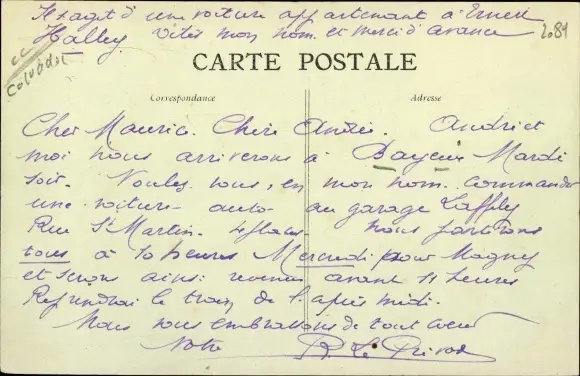 Il s'agit d'une voiture appartenant à Ernest
Halley. Dites mon nom et merci d'avance
2089
Calvados
CARTE POSTALE
Correspondance
Adresse
Cher Maurice. Chère Andrée. Andrée et
moi nous arriverons à Bayeux Mardi
soir. Voulez vous, en mon nom commander
une voiture auto au garage Laffley
Rue St Martin. 4 places. Nous partirons
tous à 10 heures Mercredi pour Magny
et serons ainsi revenus avant 11 heures
le train de l'après midi.
Nous vous embrassons de tout coeur
Votre